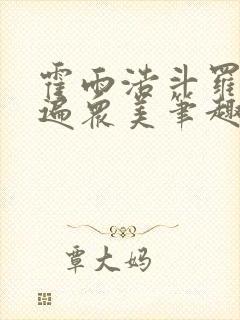 霍雨浩斗罗
遍眾美笔趣
覃大妈